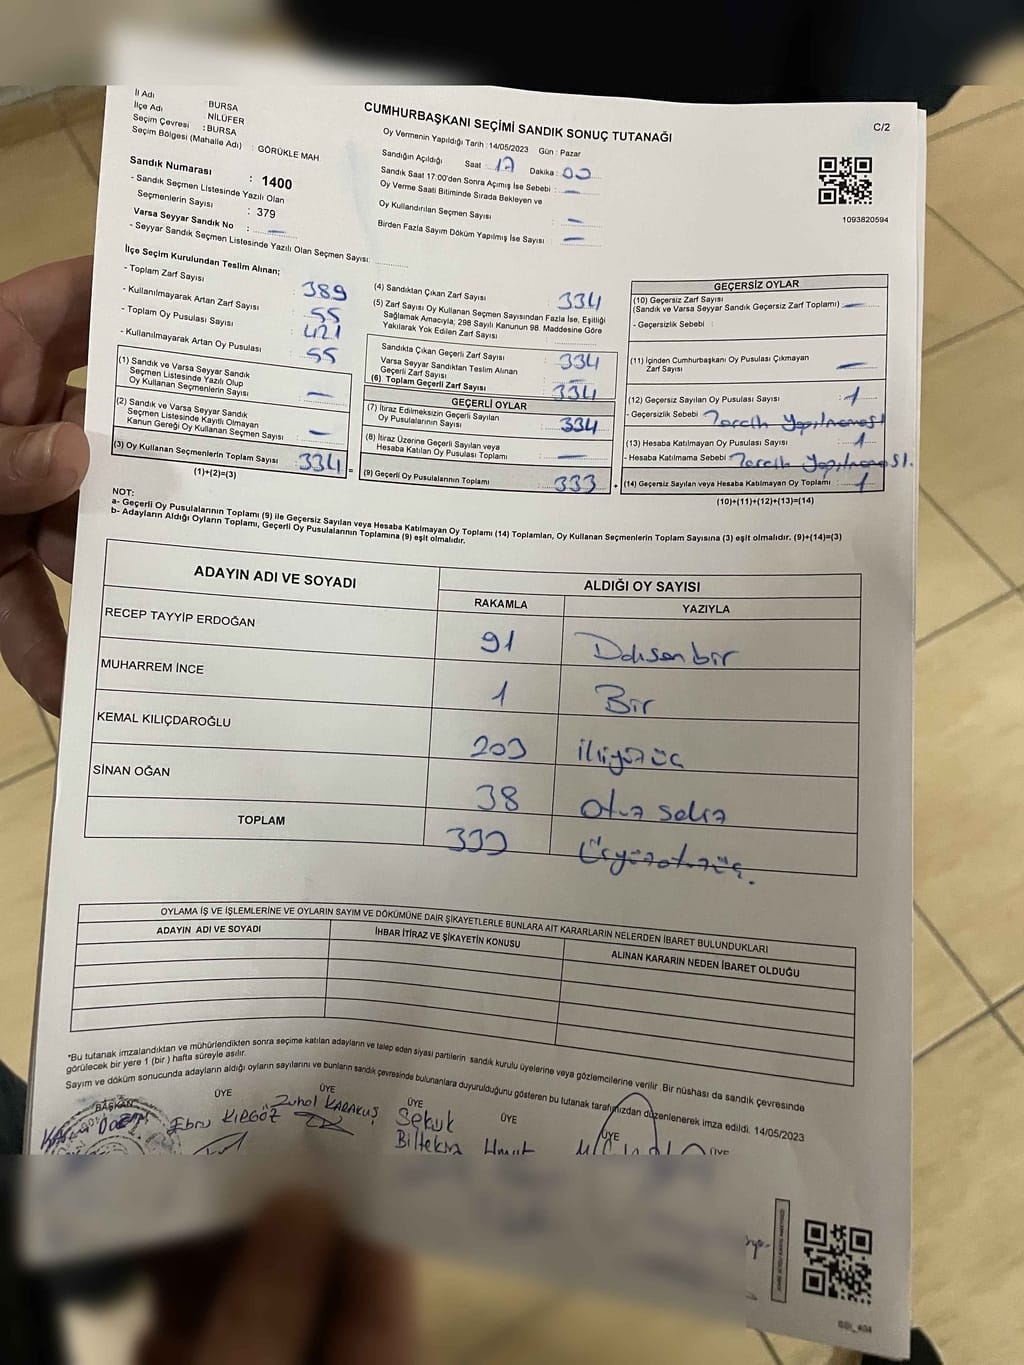 CUMHURBAŞKANI SEÇİMİ SANDIK SONUÇ TUTANAĞI
C/2
İl Adı : BURSA
İlçe Adı : NİLÜFER
Seçim Çevresi : BURSA
Seçim Bölgesi (Mahalle Adı) : GÖRÜKLE MAH
Sandık Numarası : 1400
- Sandık Seçmen Listesinde Yazılı Olan
Seçmenlerin Sayısı : 379
Varsa Seyyar Sandık No : —
- Seyyar Sandık Seçmen Listesinde Yazılı Olan Seçmen Sayısı:
Oy Vermenin Yapıldığı Tarih : 14/05/2023 Gün : Pazar
Sandığın Açıldığı Saat : 17 Dakika : 00
Sandık Saat 17:00'den Sonra Açılmış İse Sebebi : —
Oy Verme Saati Bitiminde Sırada Bekleyen ve
Oy Kullandırılan Seçmen Sayısı : —
Birden Fazla Sayım Döküm Yapılmış İse Sayısı : —
1093820594
İlçe Seçim Kurulundan Teslim Alınan;
- Toplam Zarf Sayısı : 389
- Kullanılmayarak Artan Zarf Sayısı : 55
- Toplam Oy Pusulası Sayısı : 421
- Kullanılmayarak Artan Oy Pusulası : 55
(1) Sandık ve Varsa Seyyar Sandık
Seçmen Listesinde Yazılı Olup
Oy Kullanan Seçmenlerin Sayısı : —
(2) Sandık ve Varsa Seyyar Sandık
Seçmen Listesinde Kayıtlı Olmayan
Kanun Gereği Oy Kullanan Seçmen Sayısı : —
(3) Oy Kullanan Seçmenlerin Toplam Sayısı : 334 =
(1)+(2)=(3)
(4) Sandıktan Çıkan Zarf Sayısı : 334
(5) Zarf Sayısı Oy Kullanan Seçmen Sayısından Fazla İse, Eşitliği
Sağlamak Amacıyla; 298 Sayılı Kanunun 98. Maddesine Göre
Yakılarak Yok Edilen Zarf Sayısı :
Sandıkta Çıkan Geçerli Zarf Sayısı : 334
Varsa Seyyar Sandıktan Teslim Alınan
Geçerli Zarf Sayısı : —
(6) Toplam Geçerli Zarf Sayısı : 334
GEÇERLİ OYLAR
(7) İtiraz Edilmeksizin Geçerli Sayılan
Oy Pusulalarının Sayısı : 334
(8) İtiraz Üzerine Geçerli Sayılan veya
Hesaba Katılan Oy Pusulası Toplamı : —
(9) Geçerli Oy Pusulalarının Toplamı : 333 +
GEÇERSİZ OYLAR
(10) Geçersiz Zarf Sayısı
(Sandık ve Varsa Seyyar Sandık Geçersiz Zarf Toplamı) : —
- Geçersizlik Sebebi :
(11) İçinden Cumhurbaşkanı Oy Pusulası Çıkmayan
Zarf Sayısı : —
(12) Geçersiz Sayılan Oy Pusulası Sayısı : 1
- Geçersizlik Sebebi : Tercih Yapılmaması
(13) Hesaba Katılmayan Oy Pusulası Sayısı : 1
- Hesaba Katılmama Sebebi : Tercih Yapılmaması.
(14) Geçersiz Sayılan veya Hesaba Katılmayan Oy Toplamı : 1
(10)+(11)+(12)+(13)=(14)
NOT:
a- Geçerli Oy Pusulalarının Toplamı (9) ile Geçersiz Sayılan veya Hesaba Katılmayan Oy Toplamı (14) Toplamları, Oy Kullanan Seçmenlerin Toplam Sayısına (3) eşit olmalıdır. (9)+(14)=(3)
b- Adayların Aldığı Oyların Toplamı, Geçerli Oy Pusulalarının Toplamına (9) eşit olmalıdır.
ADAYIN ADI VE SOYADI
ALDIĞI OY SAYISI
RAKAMLA YAZIYLA
RECEP TAYYİP ERDOĞAN 91 Doksanbir
MUHARREM İNCE 1 Bir
KEMAL KILIÇDAROĞLU 203 ikiyüzüç
SİNAN OĞAN 38 otuz sekiz
TOPLAM 333 Üçyüzotuzüç.
OYLAMA İŞ VE İŞLEMLERİNE VE OYLARIN SAYIM VE DÖKÜMÜNE DAİR ŞİKAYETLERLE BUNLARA AİT KARARLARIN NELERDEN İBARET BULUNDUKLARI
ADAYIN ADI VE SOYADI
İHBAR İTİRAZ VE ŞİKAYETİN KONUSU
ALINAN KARARIN NEDEN İBARET OLDUĞU
*Bu tutanak imzalandıktan ve mühürlendikten sonra seçime katılan adayların ve talep eden siyasi partilerin sandık kurulu üyelerine veya gözlemcilerine verilir Bir nüshası da sandık çevresinde
görülecek bir yere 1 (bir ) hafta süreyle asılır.
Sayım ve döküm sonucunda adayların aldığı oyların sayılarını ve bunların sandık çevresinde bulunanlara duyurulduğunu gösteren bu tutanak tarafımızdan düzenlenerek imza edildi. 14/05/2023
BAŞKAN ÜYE ÜYE ÜYE ÜYE ÜYE ÜYE
Ebru KIRGÖZ
Zuhal KARAKUŞ